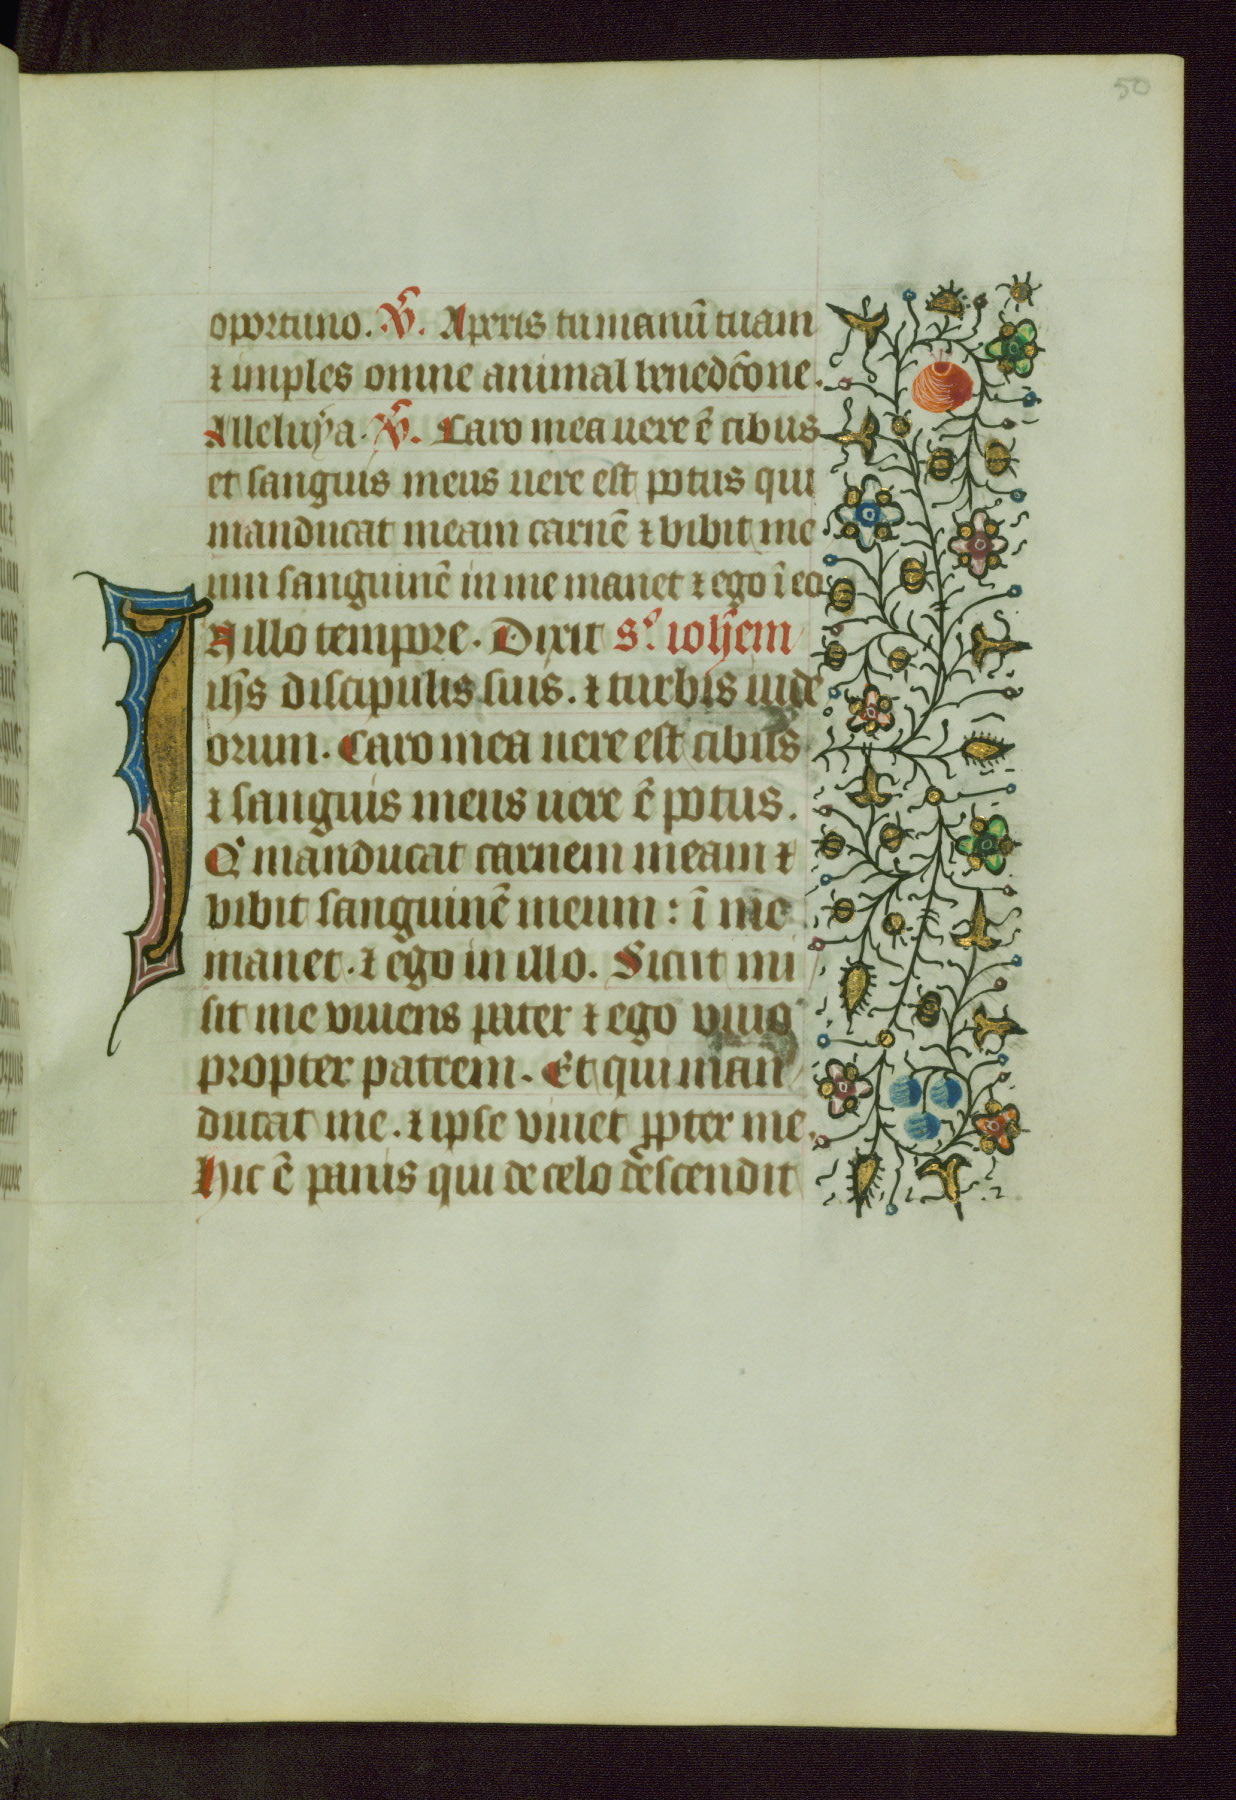 50
oportuno. V̄. Aperis tu manū tuam
⁊ imples omne animal benedc̄one.
Alleluya. V̄. Caro mea uere ē cibus
et sanguis meus uere est potus qui
manducat meam carnē ⁊ bibit me
um sanguinē in me manet ⁊ ego ī eo
In illo tempore. Dixit Sꝰ. ioh̄em
ih̄s discipulis suis. ⁊ turbis iude
orum. Caro mea uere est cibus
⁊ sanguis meus uere ē potus.
Qⁱ manducat carnem meam ⁊
bibit sanguinē meum: ī me
manet. ⁊ ego in illo. Sicut mi
sit me viuens pater ⁊ ego viuo
propter patrem. Et qui man
ducat me. ⁊ ipse viuet ꝓpter me.
Hic ē panis qui de celo descendit